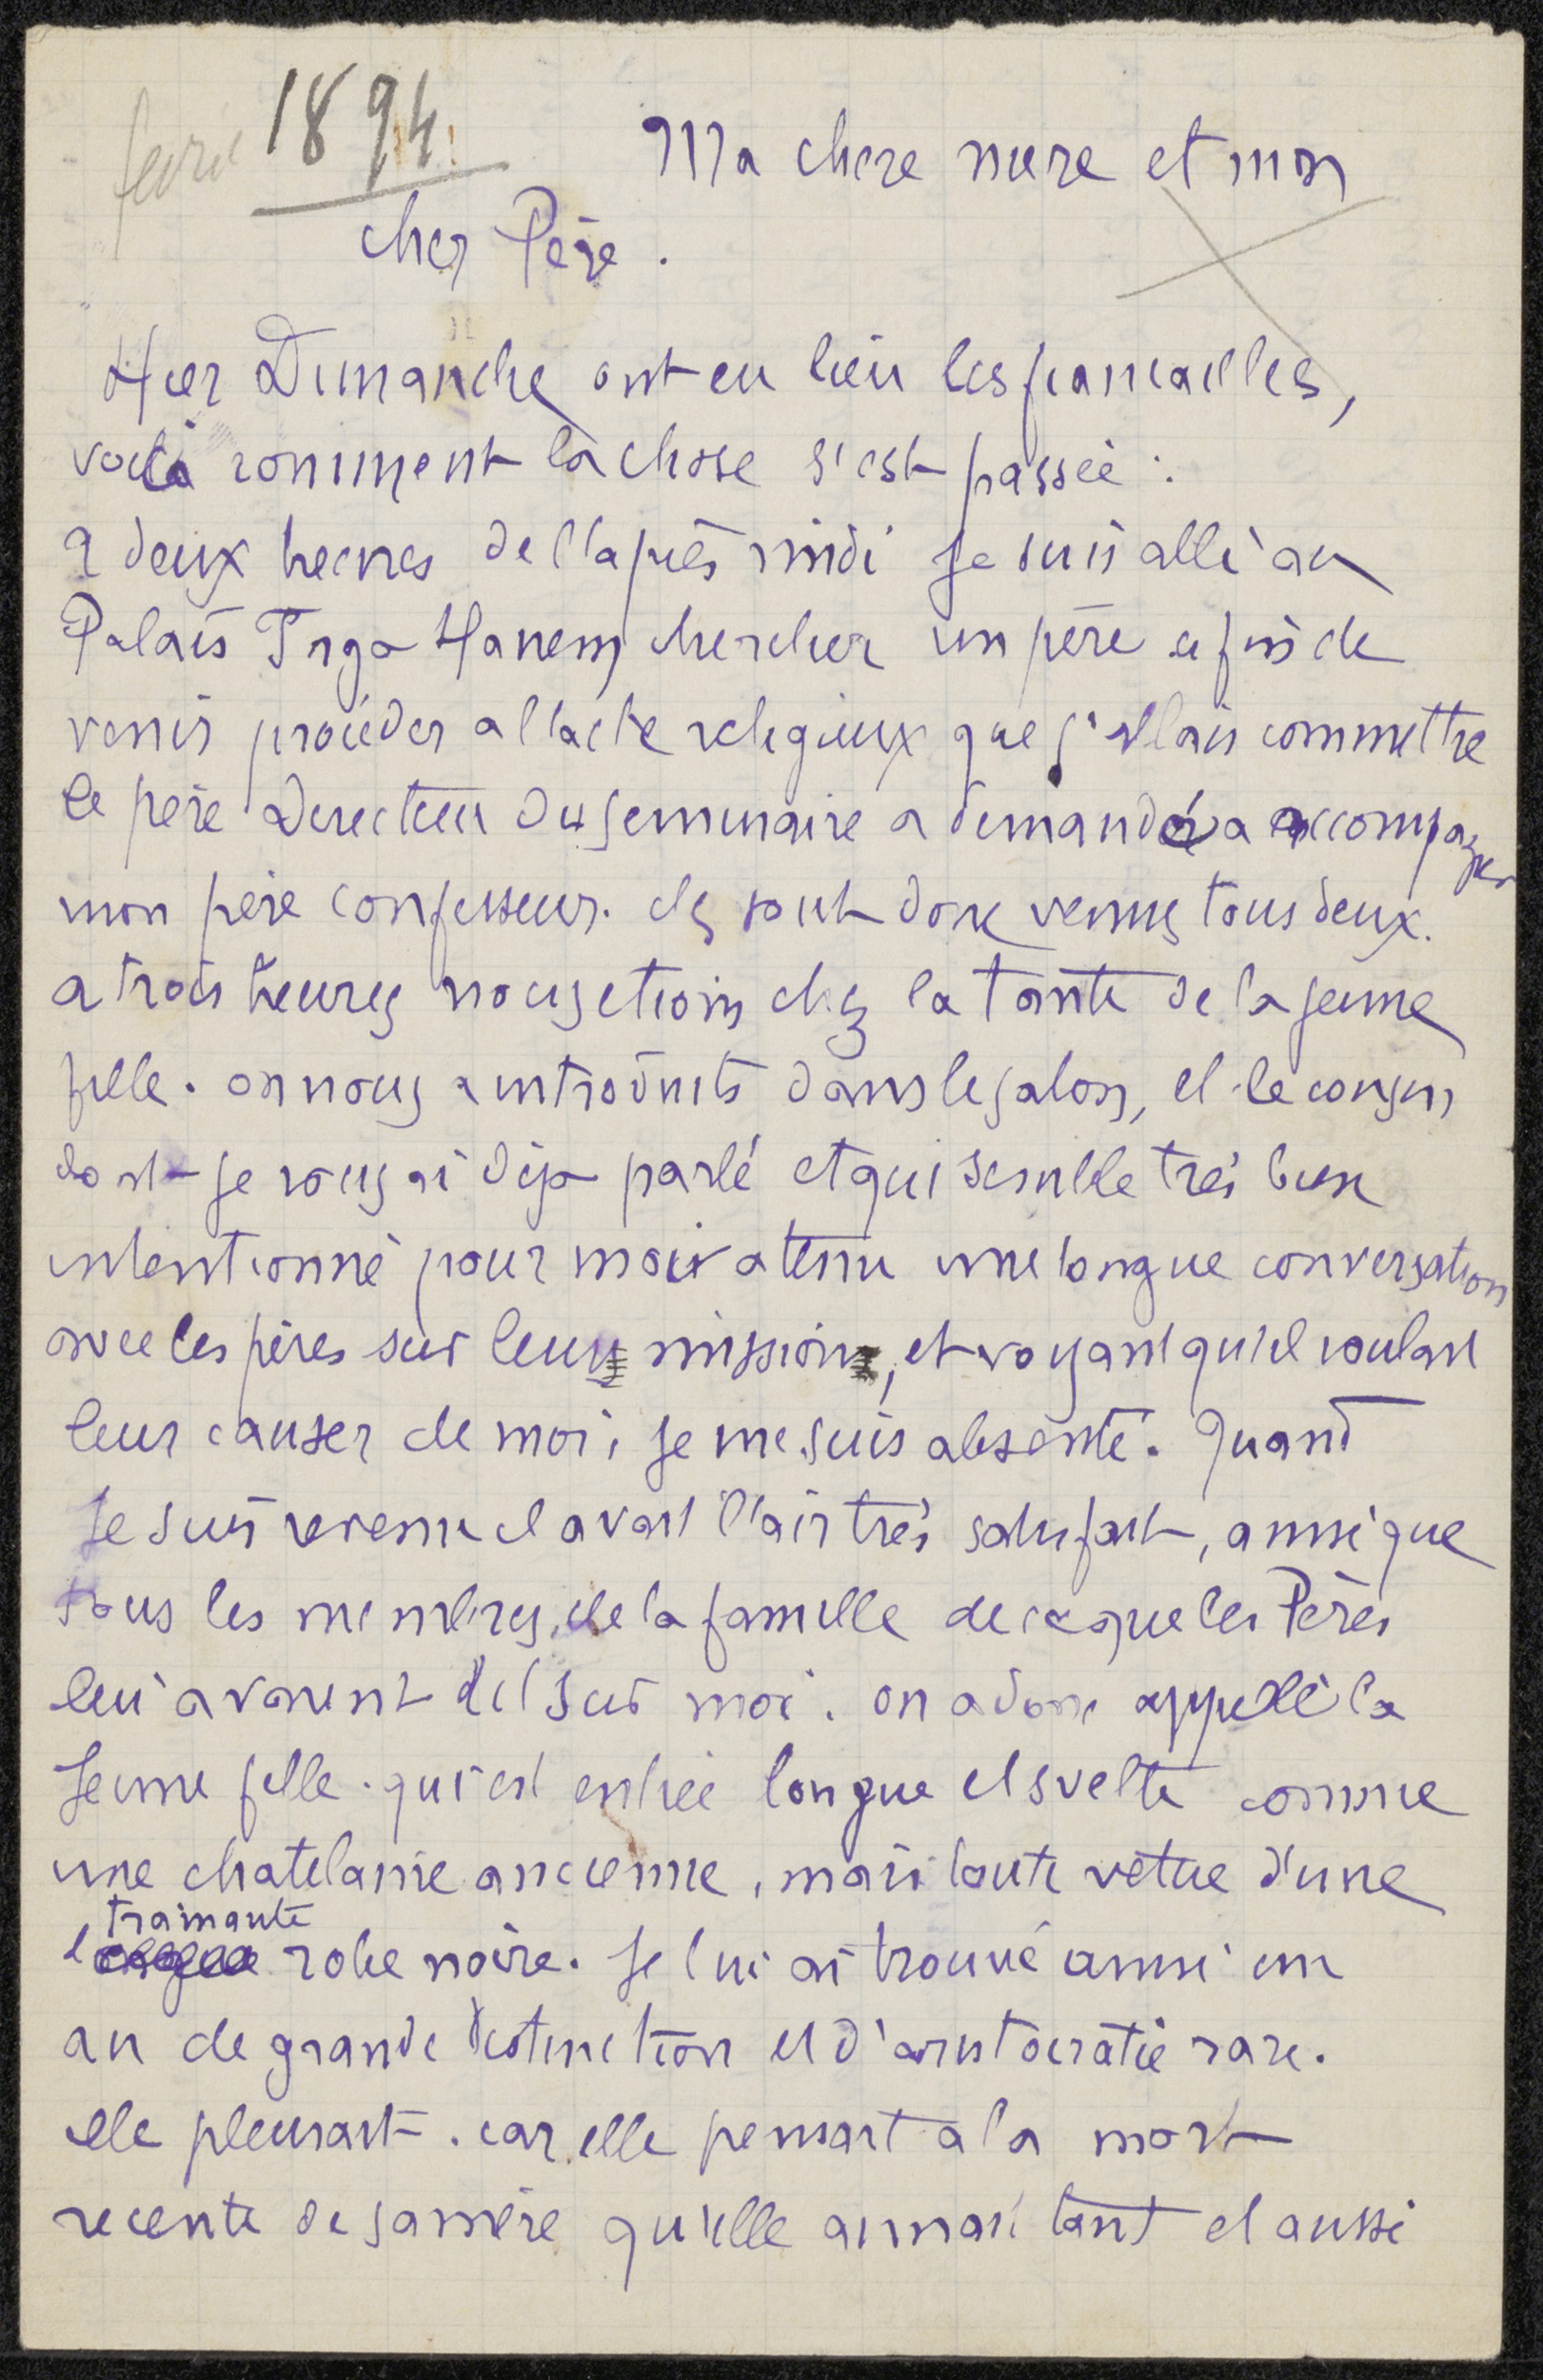 fevr 1894
Ma chere mere et mon
cher Père.
Hier Dimanche ont eu lieu les fiancailles,
voilà comment la chose s'est passée :
a deux heures de l'après midi je suis allé au
Palais Inga Hanem chercher un père afin de
venir procéder a l'acte religieux que j'allais commettre
le père Directeur du seminaire a demandé a accompagner
mon père confesseur. ils sont donc venus tous deux.
a trois heures nous etions chez la tante de la jeune
fille. on nous a introduits dans le salon, et le cousin
dont je vous ai deja parlé et qui semble très bien
intentionné pour moi a tenu une longue conversation
avec les pères sur leur mission, et voyant qu'il voulait
leur causer de moi, je me suis absenté. Quand
je suis revenu il avait l'air très satisfait, ainsi que
tous les membres de la famille de ce que les Pères
lui avaient dit sur moi. on a donc appelé la
jeune fille. qui est entrée longue et svelte comme
une chatelaine ancienne, mais toute vétue d'une
trainante
longue robe noire. je lui ai trouvé aussi un
air de grande distinction et d'aristocratie rare.
elle pleurait. car elle pensait a la mort
recente de sa mère qu'elle aimait tant et aussi